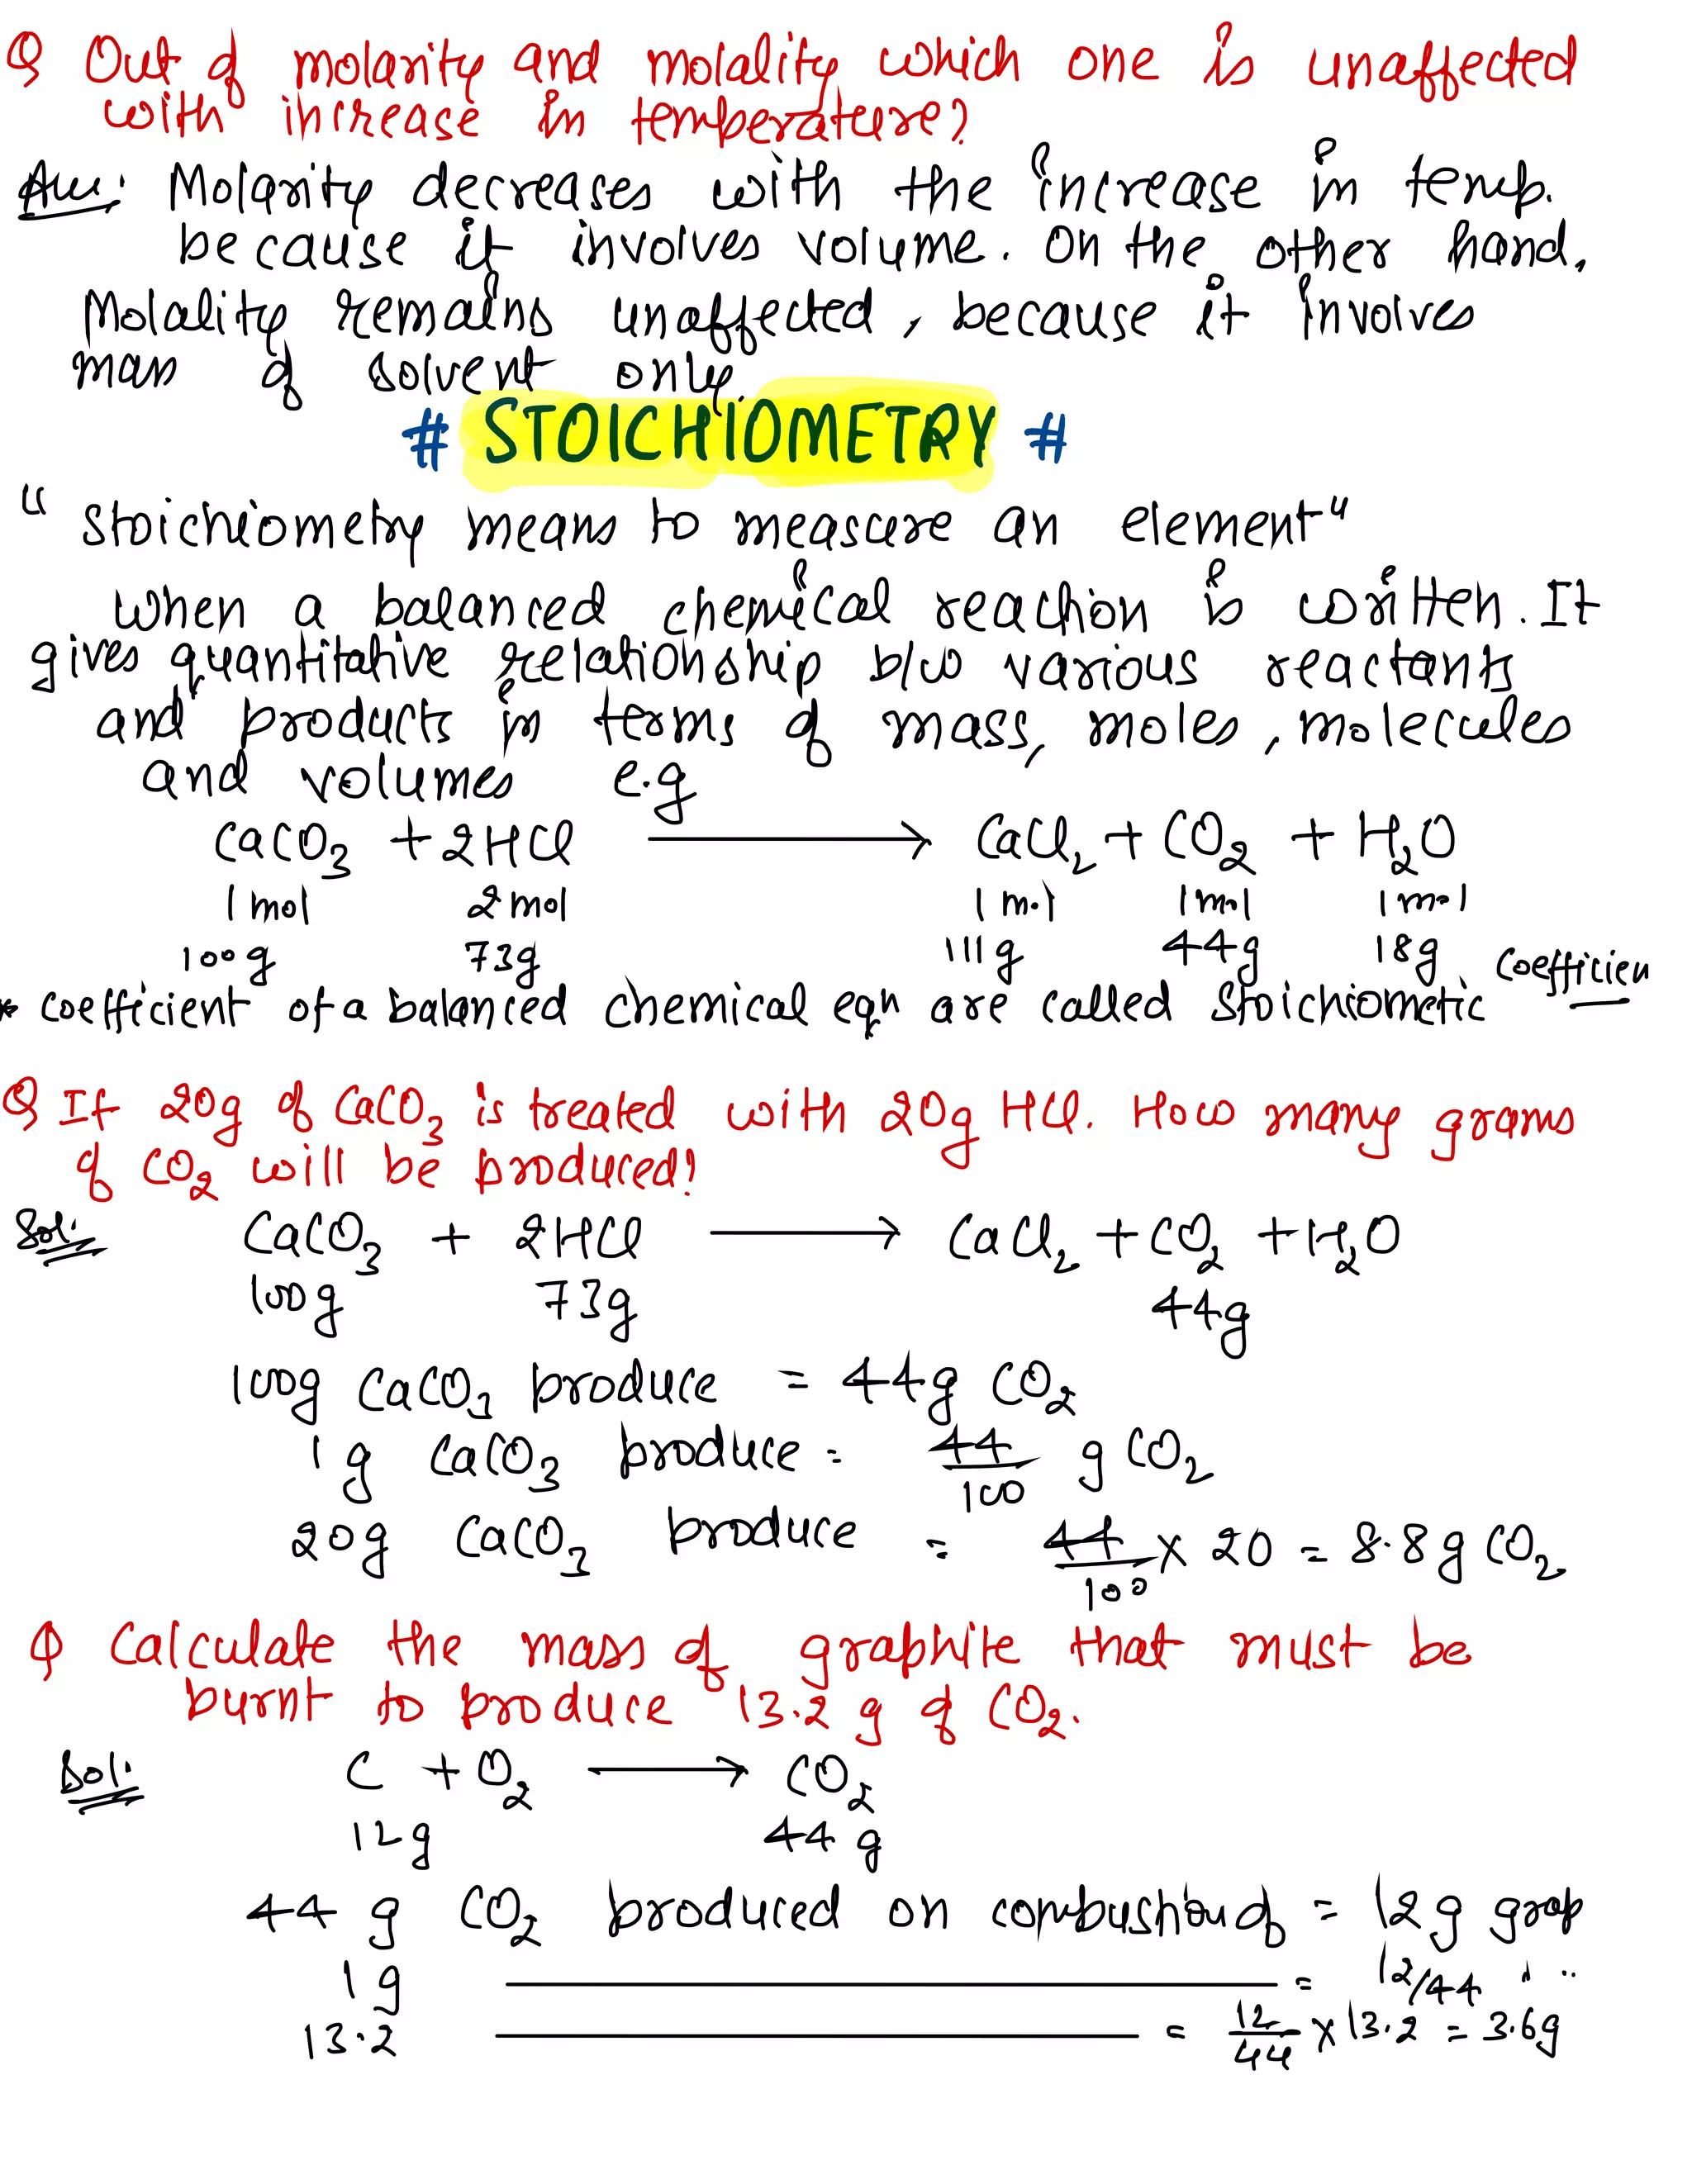 Q Out of molarity and molality which one is unaffected
with increase in temperature?
Ans: Molarity decreases with the increase in temp.
because it involves volume. On the other hand,
Molality remains unaffected, because it involves
mass of solvent only.
# STOICHIOMETRY #
" Stoichiometry means to measure an element"
When a balanced chemical reaction is written. It
gives quantitative relationship b/w various reactants
and products in terms of mass, moles, molecules
and volumes e.g
CaCO₃ + 2HCl ⟶ CaCl₂ + CO₂ + H₂O
1 mol 2 mol 1 mol 1 mol 1 mol
100g 73g 111g 44g 18g
* coefficient of a balanced chemical eqn are called Stoichiometic coefficien
Q If 20g of CaCO₃ is treated with 20g HCl. How many grams
of CO₂ will be produced?
Sol: CaCO₃ + 2HCl ⟶ CaCl₂ + CO₂ + H₂O
100g 73g 44g
100g CaCO₃ produce = 44g CO₂
1 g CaCO₃ produce = 44/100 g CO₂
20g CaCO₃ produce = 44/100 × 20 = 8.8g CO₂
Q Calculate the mass of graphite that must be
burnt to produce 13.2 g of CO₂.
Sol: C + O₂ ⟶ CO₂
12g 44 g
44 g CO₂ produced on combustion of = 12g grap
1 g = 12/44 " "
13.2 = 12/44 × 13.2 = 3.6g